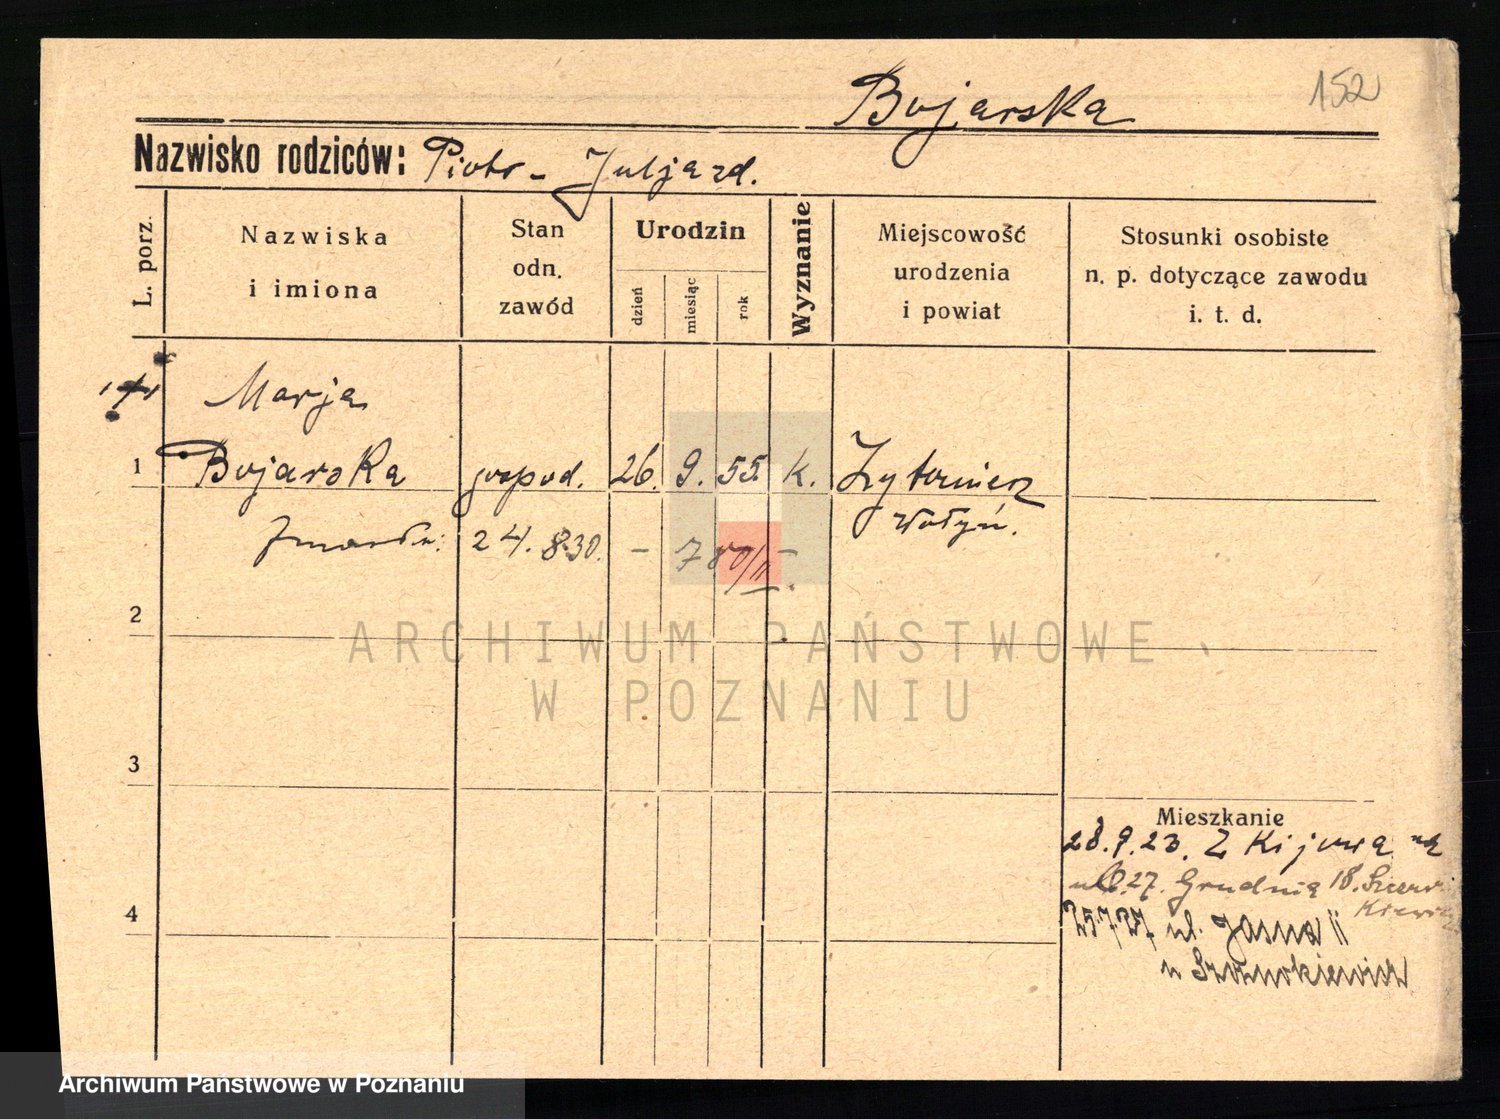 152
Bojarska
Nazwisko rodziców: Piotr - Juljazd.
L. porz.
Nazwiska
i imiona
Stan
odn.
zawód
Urodzin
dzień
miesiąc
rok
Wyznanie
Miejscowość
urodzenia
i powiat
Stosunki osobiste
n. p. dotyczące zawodu
i. t. d.
Marja
1 Bojarska gospod. 26. 9. 55. k. Żytomierz
Wołyń.
Zmarła: 24. 8.30. -
2
ARCHIWUM PAŃSTWOWE
W POZNANIU
3
Mieszkanie
28.9.23. Z Kijowa na
27. Grudnia 18.
4
25.7.27 ul. Jasna 11
u
Archiwum Państwowe w Poznaniu